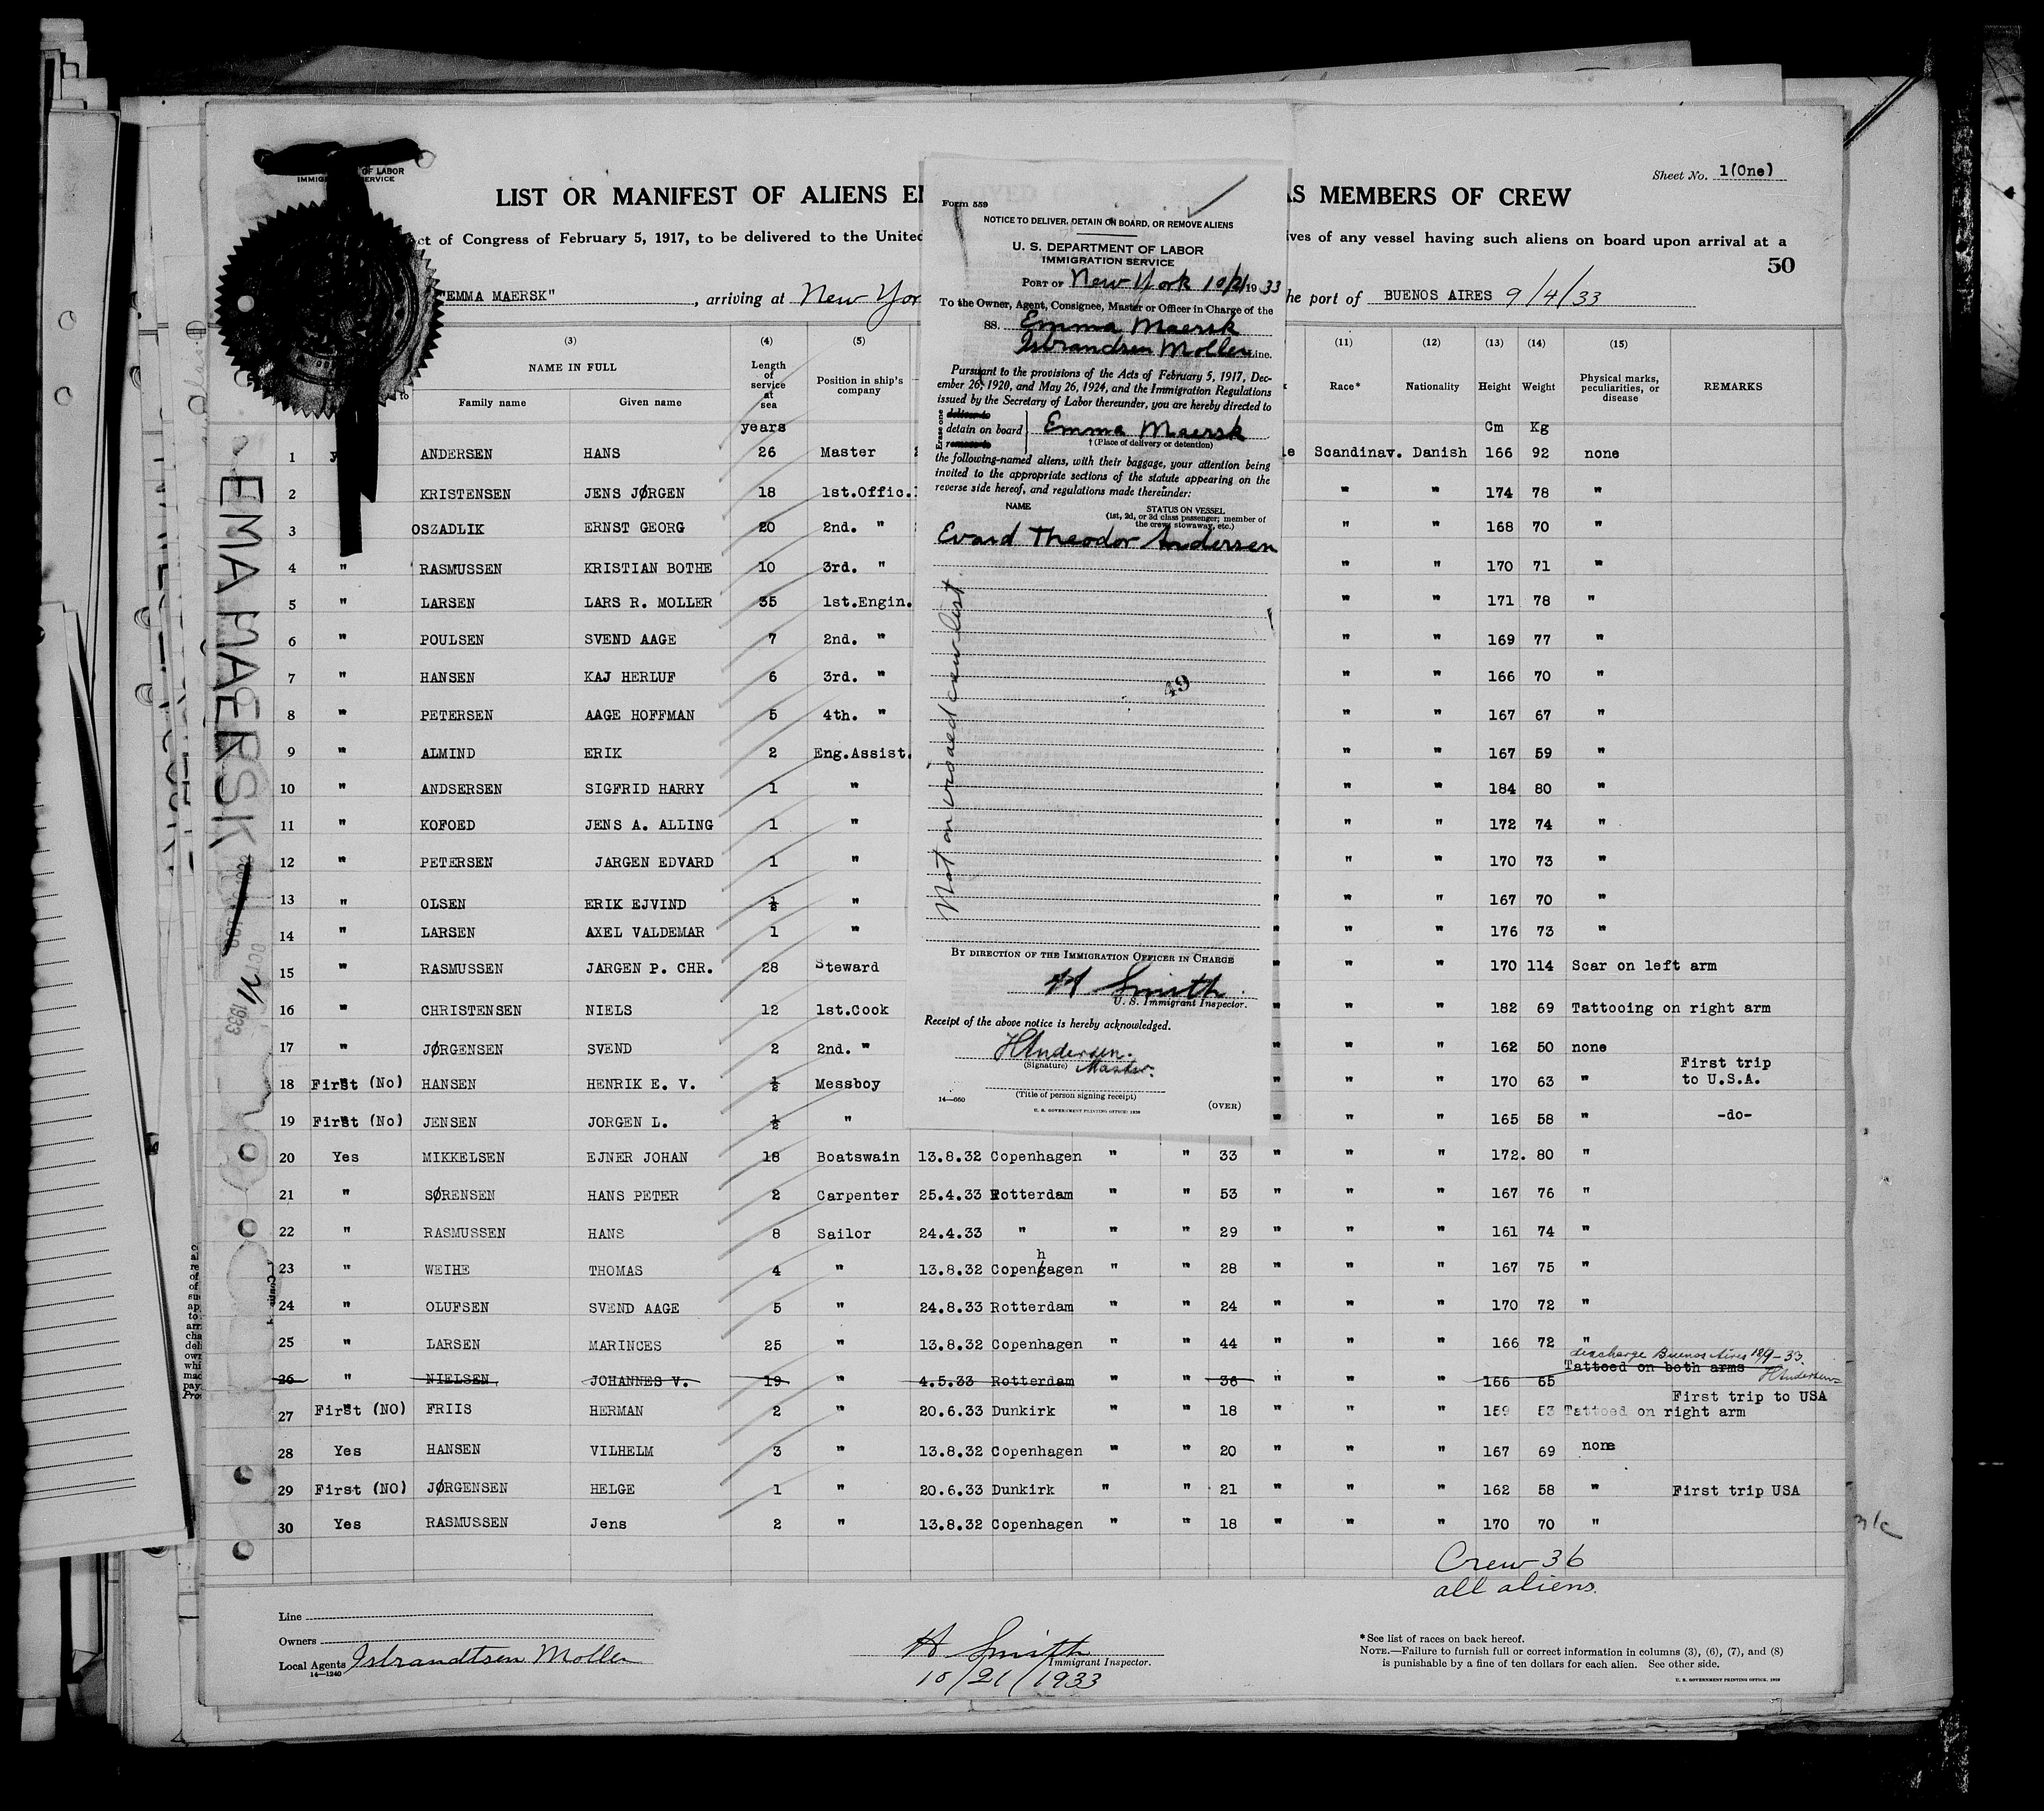 Sheet No. 1(One)
OF LABOR
SERVICE
LIST OR MANIFEST OF ALIENS E
AS MEMBERS OF CREW
ct of Congress of February 5, 1917, to be delivered to the United
ives of any vessel having such aliens on board upon arrival at a
50
"EMMA MAERSK" , arriving at New Yor
he port of BUENOS AIRES 9/4/33
Form 559
NOTICE TO DELIVER, DETAIN ON BOARD, OR REMOVE ALIENS
U. S. DEPARTMENT OF LABOR
IMMIGRATION SERVICE
PORT OF New York 10/21 1933
To the Owner, Agent, Consignee, Master or Officer in Charge of the
SS. Emma Maersk
Isbrandsen Moller Line.
Pursuant to the provisions of the Acts of February 5, 1917, Dec-
ember 26, 1920, and May 26, 1924, and the Immigration Regulations
issued by the Secretary of Labor thereunder, you are hereby directed to
Erase one
deliver to
detain on board Emma Maersk
remove to
† (Place of delivery or detention)
the following-named aliens, with their baggage, your attention being
invited to the appropriate sections of the statute appearing on the
reverse side hereof, and regulations made thereunder:
NAME
STATUS ON VESSEL
(1st, 2d, or 3d class passenger; member of
the crew, stowaway, etc.)
Evard Theodor Andersen
Not on visaed crew list.
49
BY DIRECTION OF THE IMMIGRATION OFFICER IN CHARGE
H Smith
U. S. Immigrant Inspector.
Receipt of the above notice is hereby acknowledged.
HAndersen.
(Signature) Master.
(Title of person signing receipt)
14—660
U. S. GOVERNMENT PRINTING OFFICE: 1930
(OVER)
(3) (4) (5) (11) (12) (13) (14) (15)
NAME IN FULL
Family name Given name
Length of service at sea
Position in ship's company
Race* Nationality Height Weight
Physical marks, peculiarities, or disease
REMARKS
years Cm Kg
1 ANDERSEN HANS 26 Master Scandinav. Danish 166 92 none
2 KRISTENSEN JENS JØRGEN 18 1st.Offic. " " 174 78 "
3 OSZADLIK ERNST GEORG 20 2nd. " " " 168 70 "
4 " RASMUSSEN KRISTIAN BOTHE 10 3rd. " " " 170 71 "
5 " LARSEN LARS R. MOLLER 35 1st.Engin. " " 171 78 "
6 " POULSEN SVEND AAGE 7 2nd. " " " 169 77 "
7 " HANSEN KAJ HERLUF 6 3rd. " " " 166 70 "
8 " PETERSEN AAGE HOFFMAN 5 4th. " " " 167 67 "
9 " ALMIND ERIK 2 Eng.Assist. " " 167 59 "
10 " ANDSERSEN SIGFRID HARRY 1 " " " 184 80 "
11 " KOFOED JENS A. ALLING 1 " " " 172 74 "
12 " PETERSEN JARGEN EDVARD 1 " " " 170 73 "
13 " OLSEN ERIK EJVIND ½ " " " 167 70 "
14 " LARSEN AXEL VALDEMAR 1 " " " 176 73 "
15 " RASMUSSEN JARGEN P. CHR. 28 Steward " " 170 114 Scar on left arm
16 " CHRISTENSEN NIELS 12 1st.Cook " " " 182 69 Tattooing on right arm
17 " JØRGENSEN SVEND 2 2nd. " " " " 162 50 none
18 First (No) HANSEN HENRIK E. V. ½ Messboy " " " 170 63 " First trip to U.S.A.
19 First (No) JENSEN JORGEN L. ½ " " " " 165 58 " -do-
20 Yes MIKKELSEN EJNER JOHAN 18 Boatswain 13.8.32 Copenhagen " " 33 " " " 172. 80 "
21 " SØRENSEN HANS PETER 2 Carpenter 25.4.33 Rotterdam " " 53 " " " 167 76 "
22 " RASMUSSEN HANS 8 Sailor 24.4.33 " " " 29 " " " 161 74 "
23 " WEIHE THOMAS 4 " 13.8.32 Copenhagen " " 28 " " " 167 75 "
24 " OLUFSEN SVEND AAGE 5 " 24.8.33 Rotterdam " " 24 " " " 170 72 "
25 " LARSEN MARINCES 25 " 13.8.32 Copenhagen " " 44 " " " 166 72 "
discharge Buenos Aires 18/9-33. HAndersen
26 " NIELSEN JOHANNES V. 19 " 4.5.33 Rotterdam " " 36 " " " 166 65 Tattoed on both arms
27 First (NO) FRIIS HERMAN 2 " 20.6.33 Dunkirk " " 18 " " " 159 53 Tattoed on right arm First trip to USA
28 Yes HANSEN VILHELM 3 " 13.8.32 Copenhagen " " 20 " " " 167 69 none
29 First (NO) JØRGENSEN HELGE 1 " 20.6.33 Dunkirk " " 21 " " " 162 58 " First trip USA
30 Yes RASMUSSEN Jens 2 " 13.8.32 Copenhagen " " 18 " " " 170 70 "
Crew 36
all aliens.
EMA MAERSK
OCT 21 1933
Line
Owners
Local Agents Isbrandtsen Moller
14—1240
H Smith
Immigrant Inspector.
10/21/1933
*See list of races on back hereof.
NOTE.—Failure to furnish full or correct information in columns (3), (6), (7), and (8)
is punishable by a fine of ten dollars for each alien. See other side.
U. S. GOVERNMENT PRINTING OFFICE, 1930